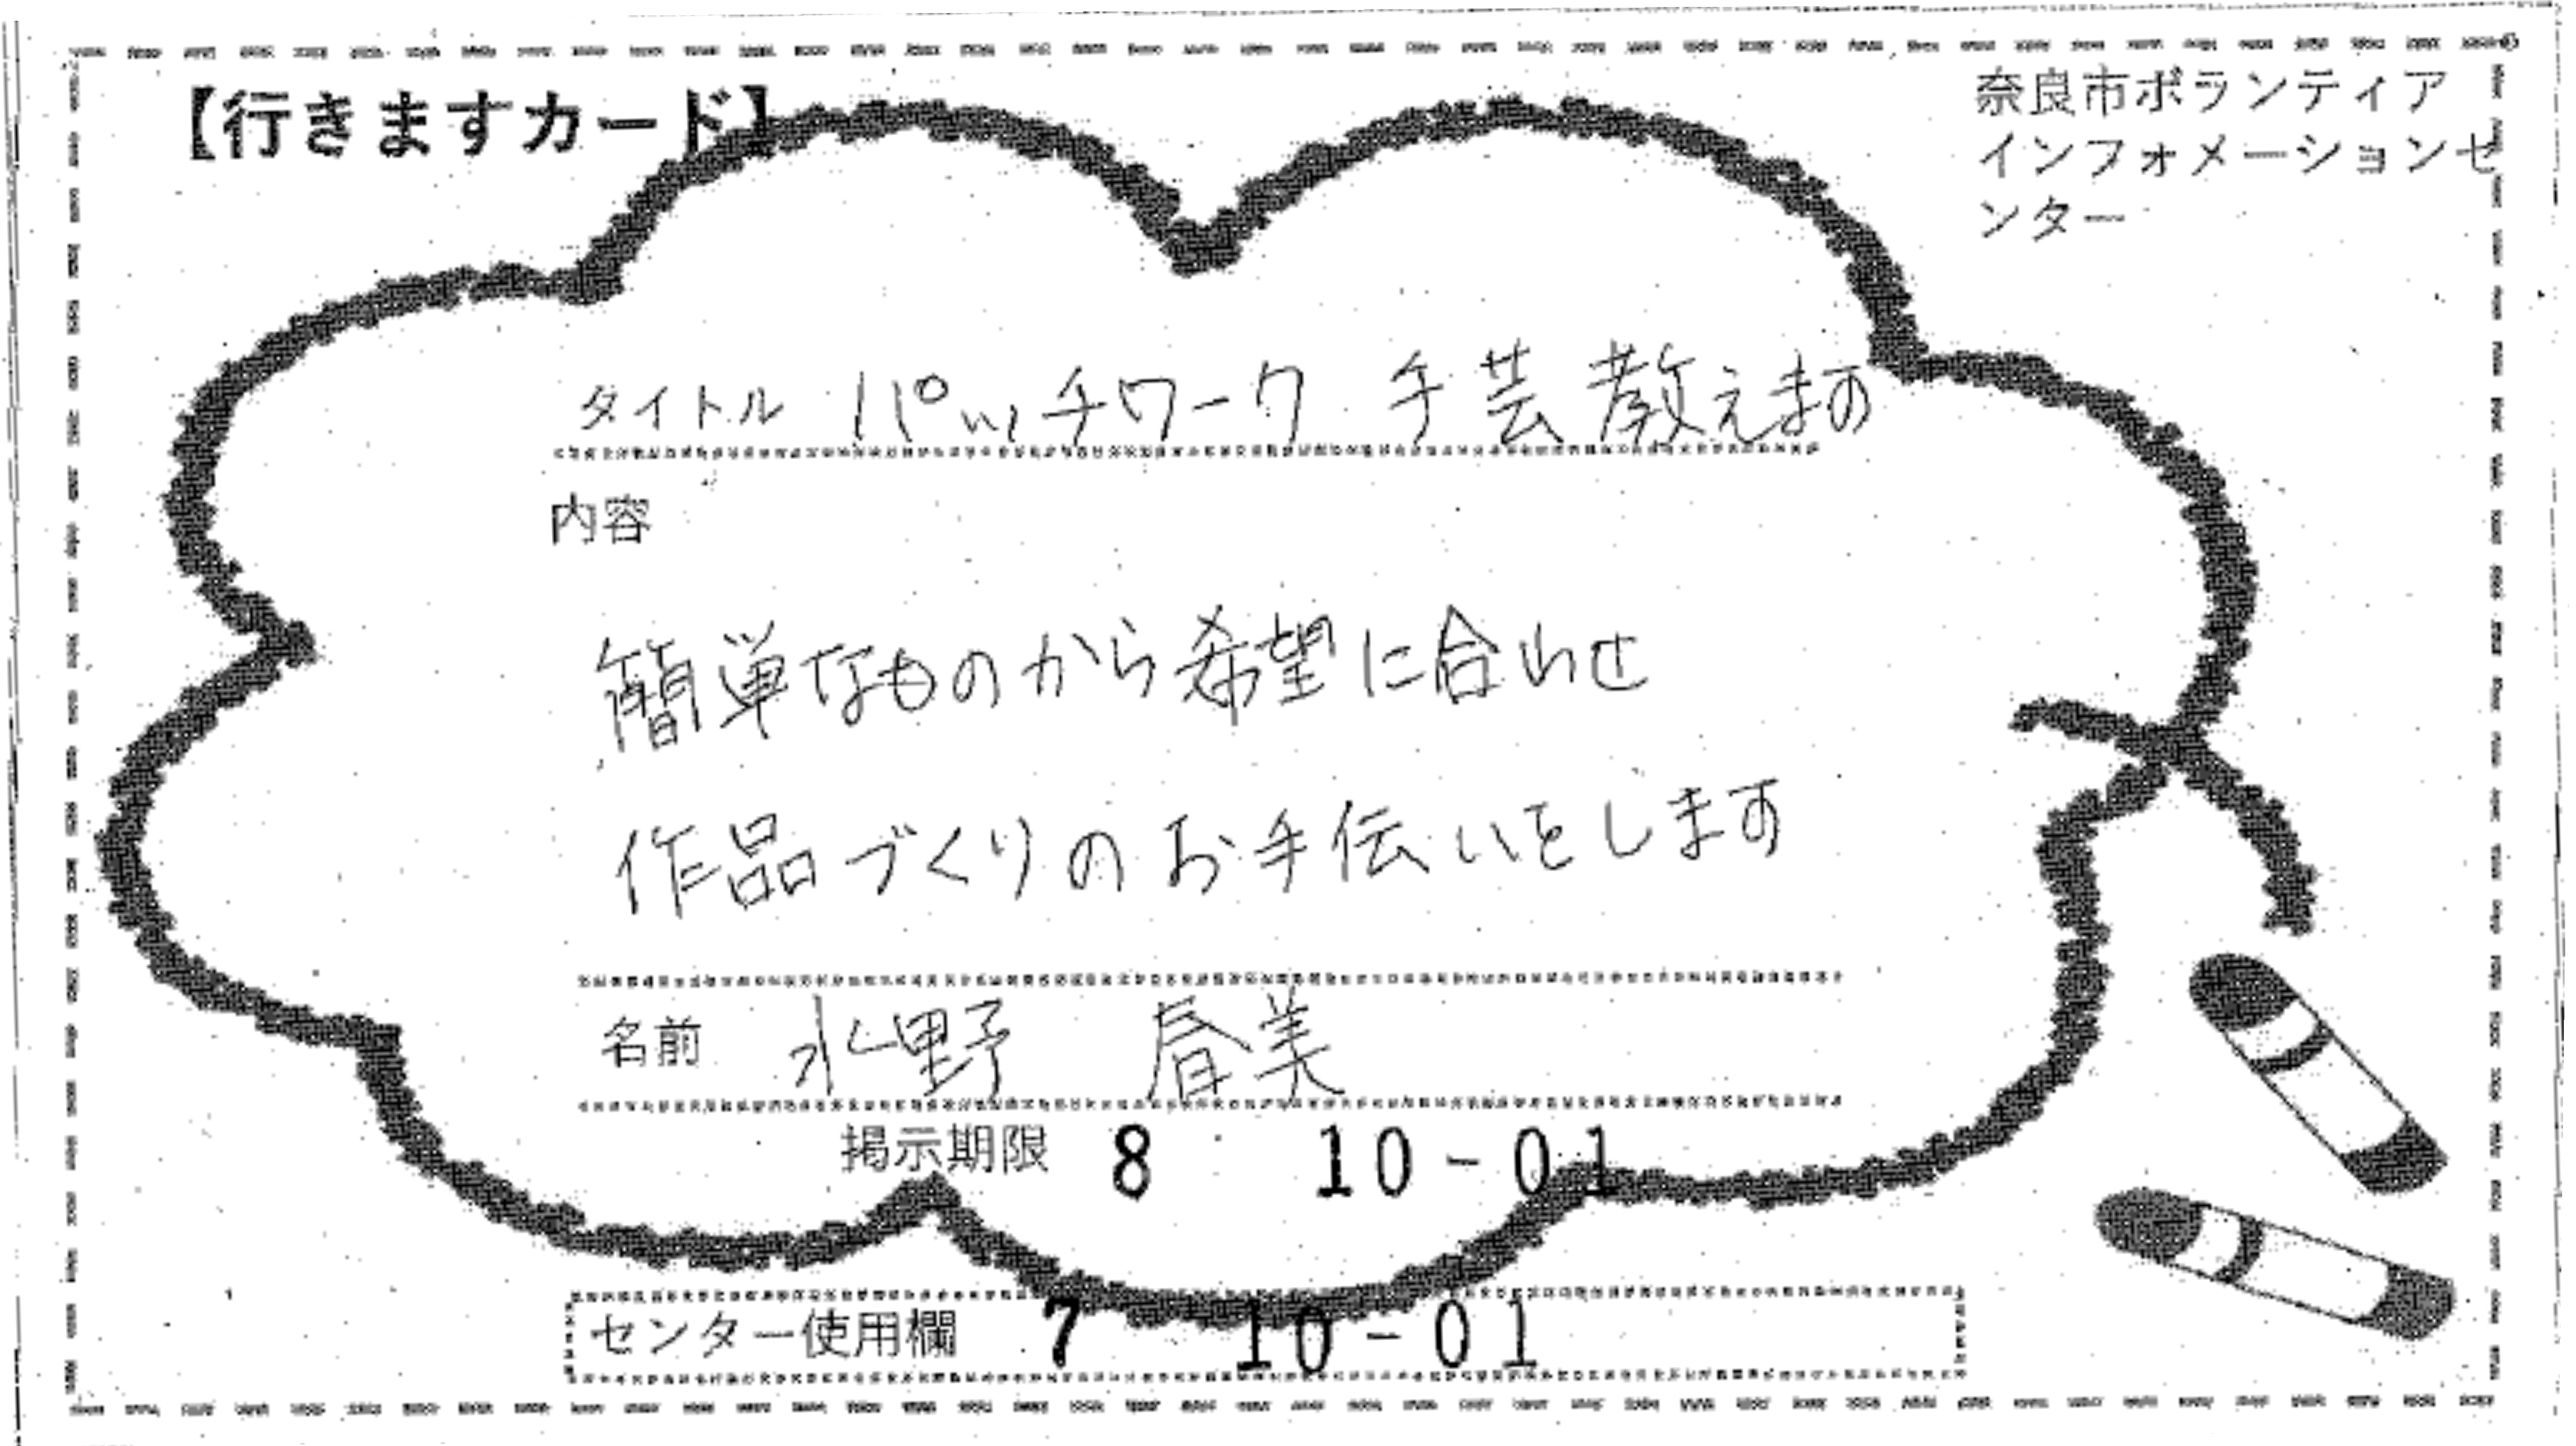 【行きますカード】
奈良市ボランティア
インフォメーションセ
ンター
タイトル パッチワーク 手芸教えます
内容
簡単なものから希望に合わせ
作品づくりのお手伝いをします
名前 水野 春美
掲示期限 8 10-01
センター使用欄 7 10-01